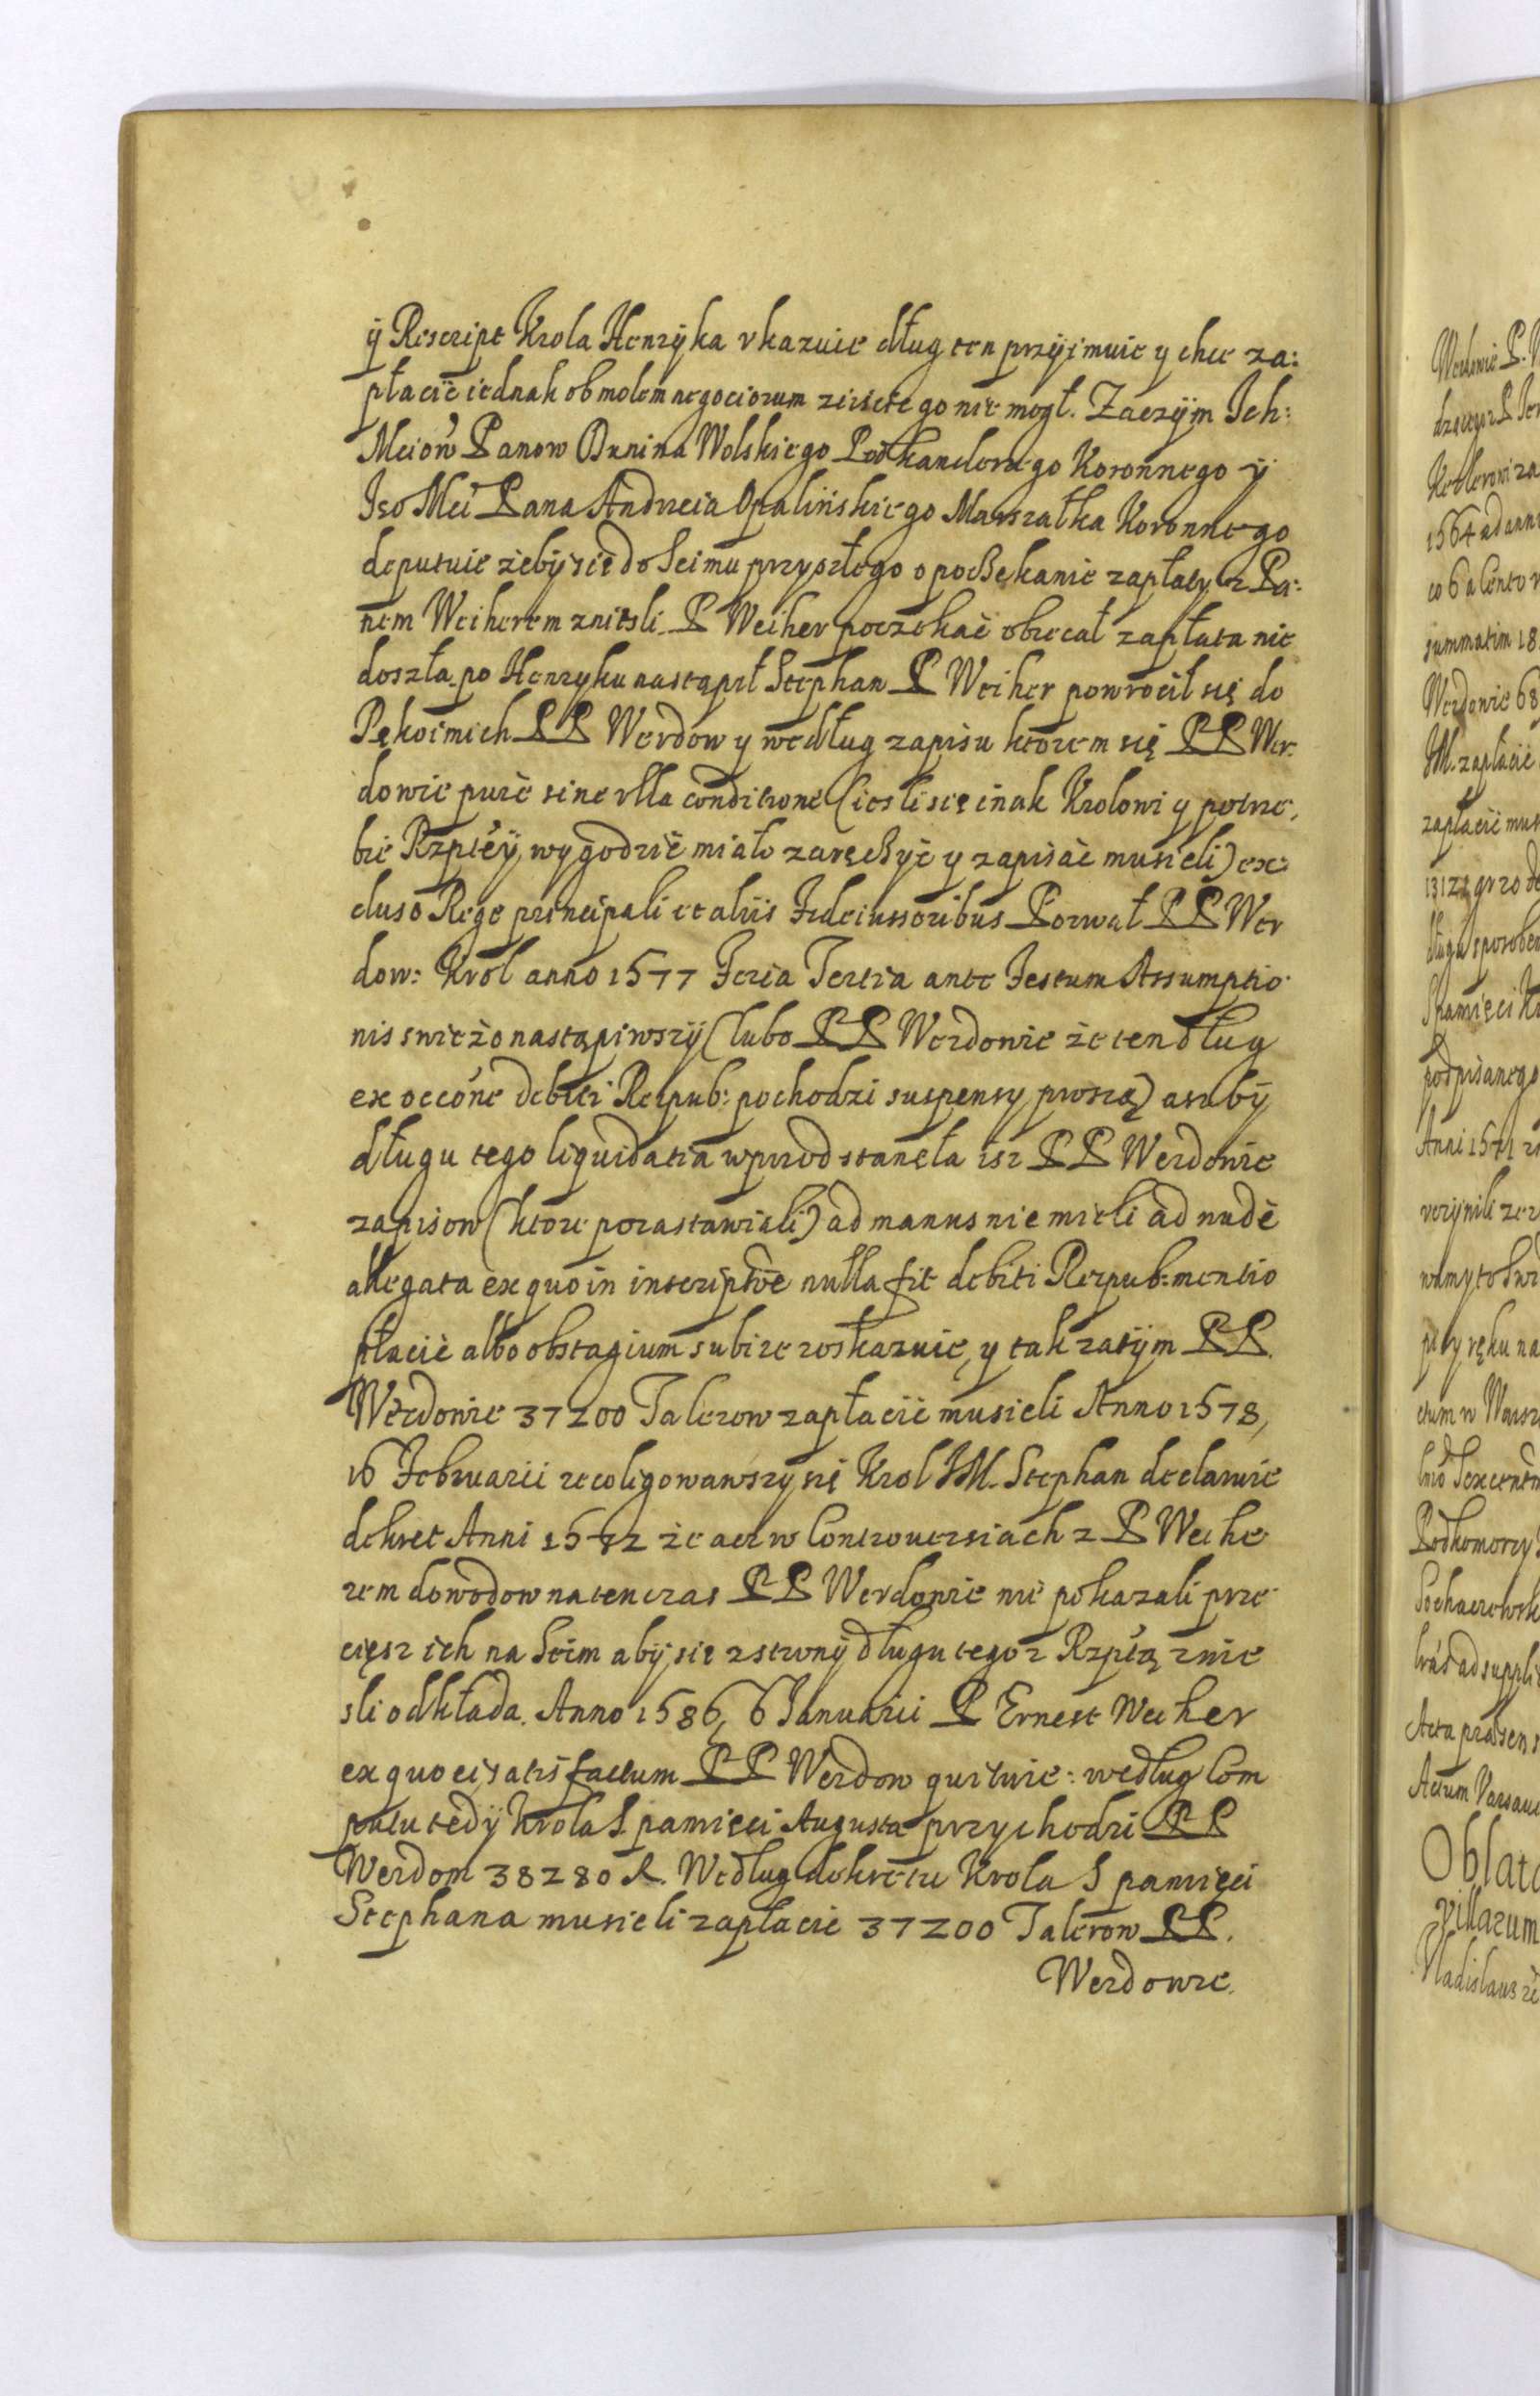 ÿ Rescript Krola Henrÿka vkazuie dług ten przÿimuie y chce za:
płacic iednak ob molem negociorum ziscic go nie mogł. Zaczÿm Ich:
Mciow Panow Dunina Wolskiego Podkanclerzego Koronnego ÿ
Ieo Mci Pana Andrzeia Opalińskiego Marszałka Koronnego
deputuie żebÿ się do Seimu przyszłego o poczekanie zapłaty z Pa:
nem Weiherem zniesli. P Weiher poczekać obiecał zapłata nie
doszła. po Henryku nastąpił Stephan P Weiher powrocił się do
Rękoimich PP Werdow y według zapisu ktorem się PP Wer:
dowie purè sine vlla conditione (iesli się inak Krolowi y potrze,
bie Rzptey, wygodzić miało zaręczyć y zapisać musieli) ex:
cluso Rege principali et aliis Fideiussoribus Porwał PP Wer
dow: Krol anno 1577 Feria Tertia ante Festum Assumptio
nis swieżo nastąpiwszÿ (lubo PP Werdowie że ten dług
ex occõne debiti Reipub: pochodzi suspensy proszą) a tu bÿ
długu tego liquidatia wprzod stanęła isz PP Werdowie
zapisow (ktore pozastawiali) ad manus nie mieli ad nudè
allegata ex quo in inscriptõe nulla fit debiti Reipub: mentio
płacić albo obstagium subire roskazuie, y tak zatÿm PP.
Werdowie 37200 Talerow zapłacić musieli Anno 1578,
16 Februarii recoligowawszy się Krol JM. Stephan declaruie
dekret Anni 1572 że acz w Controuersiach z P Weihe
rem dowodow na ten czas PP Werdowie nie pokazali prze
cięsz ich na Seim abÿ się z stronÿ długu tego z Rzptą znie
sli odkłada. Anno 1586, 6 Januarii P Ernest Weiher
ex quo ei satisfactum PP Werdow quituie: według Com
putu tedÿ Krola S. pamięci Augusta przychodzi PP
Werdom 38280 fl. Według dekretu Krola S pamięci
Stephana musieli zapłacic 37200 Talerow PP.
Werdowie.